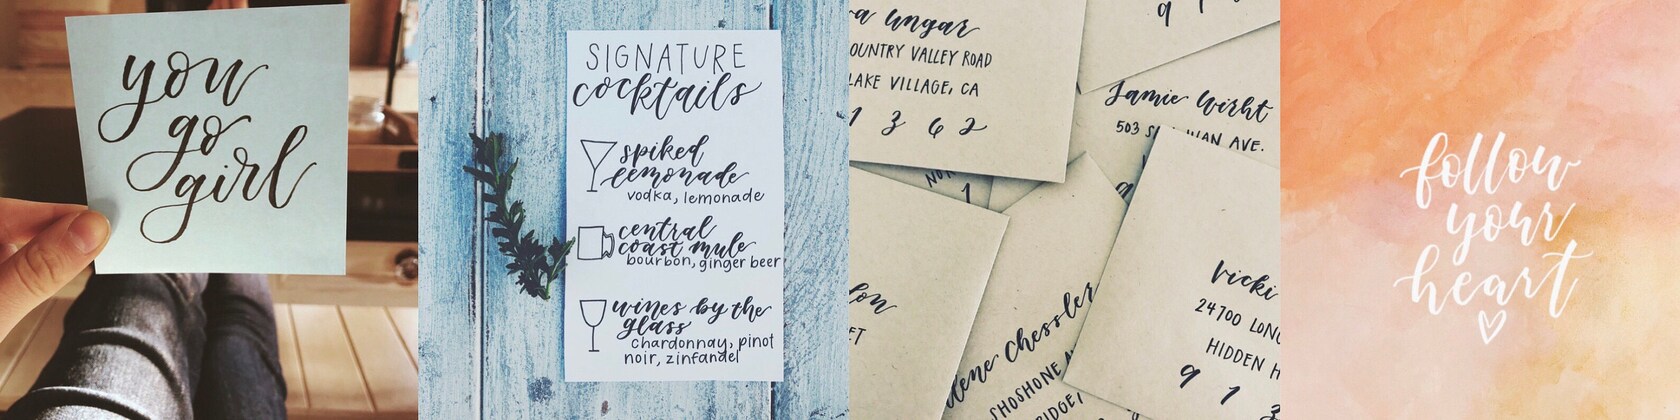 you
go
girl
SIGNATURE
cocktails
spiked
lemonade
vodka, lemonade
central
coast mule
bourbon, ginger beer
wines by the
glass
chardonnay, pinot
noir, zinfandel
a ungar
OUNTRY VALLEY ROAD
LAKE VILLAGE, CA
1 3 6 2
9 1
Jamie Wirht
503 S WAN AVE.
NO
1
9
lon
ET
lene Chessler
SHOSHONE A
RIDGE
Vicki
24700 LONG
HIDDEN H
9 1 3
follow
your
heart